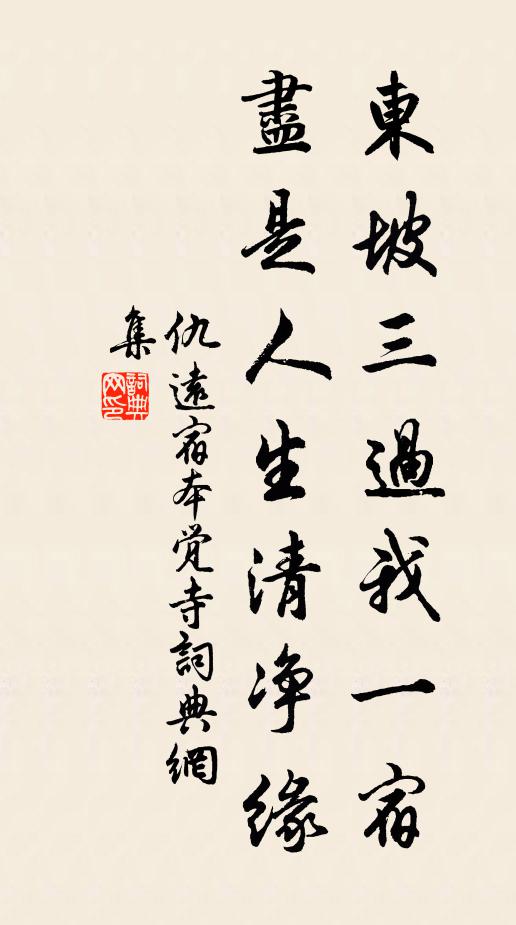 東坡三過我一宿
盡是人生清净緣
仇遠宿本覺寺詞典網
集
詞典
网印